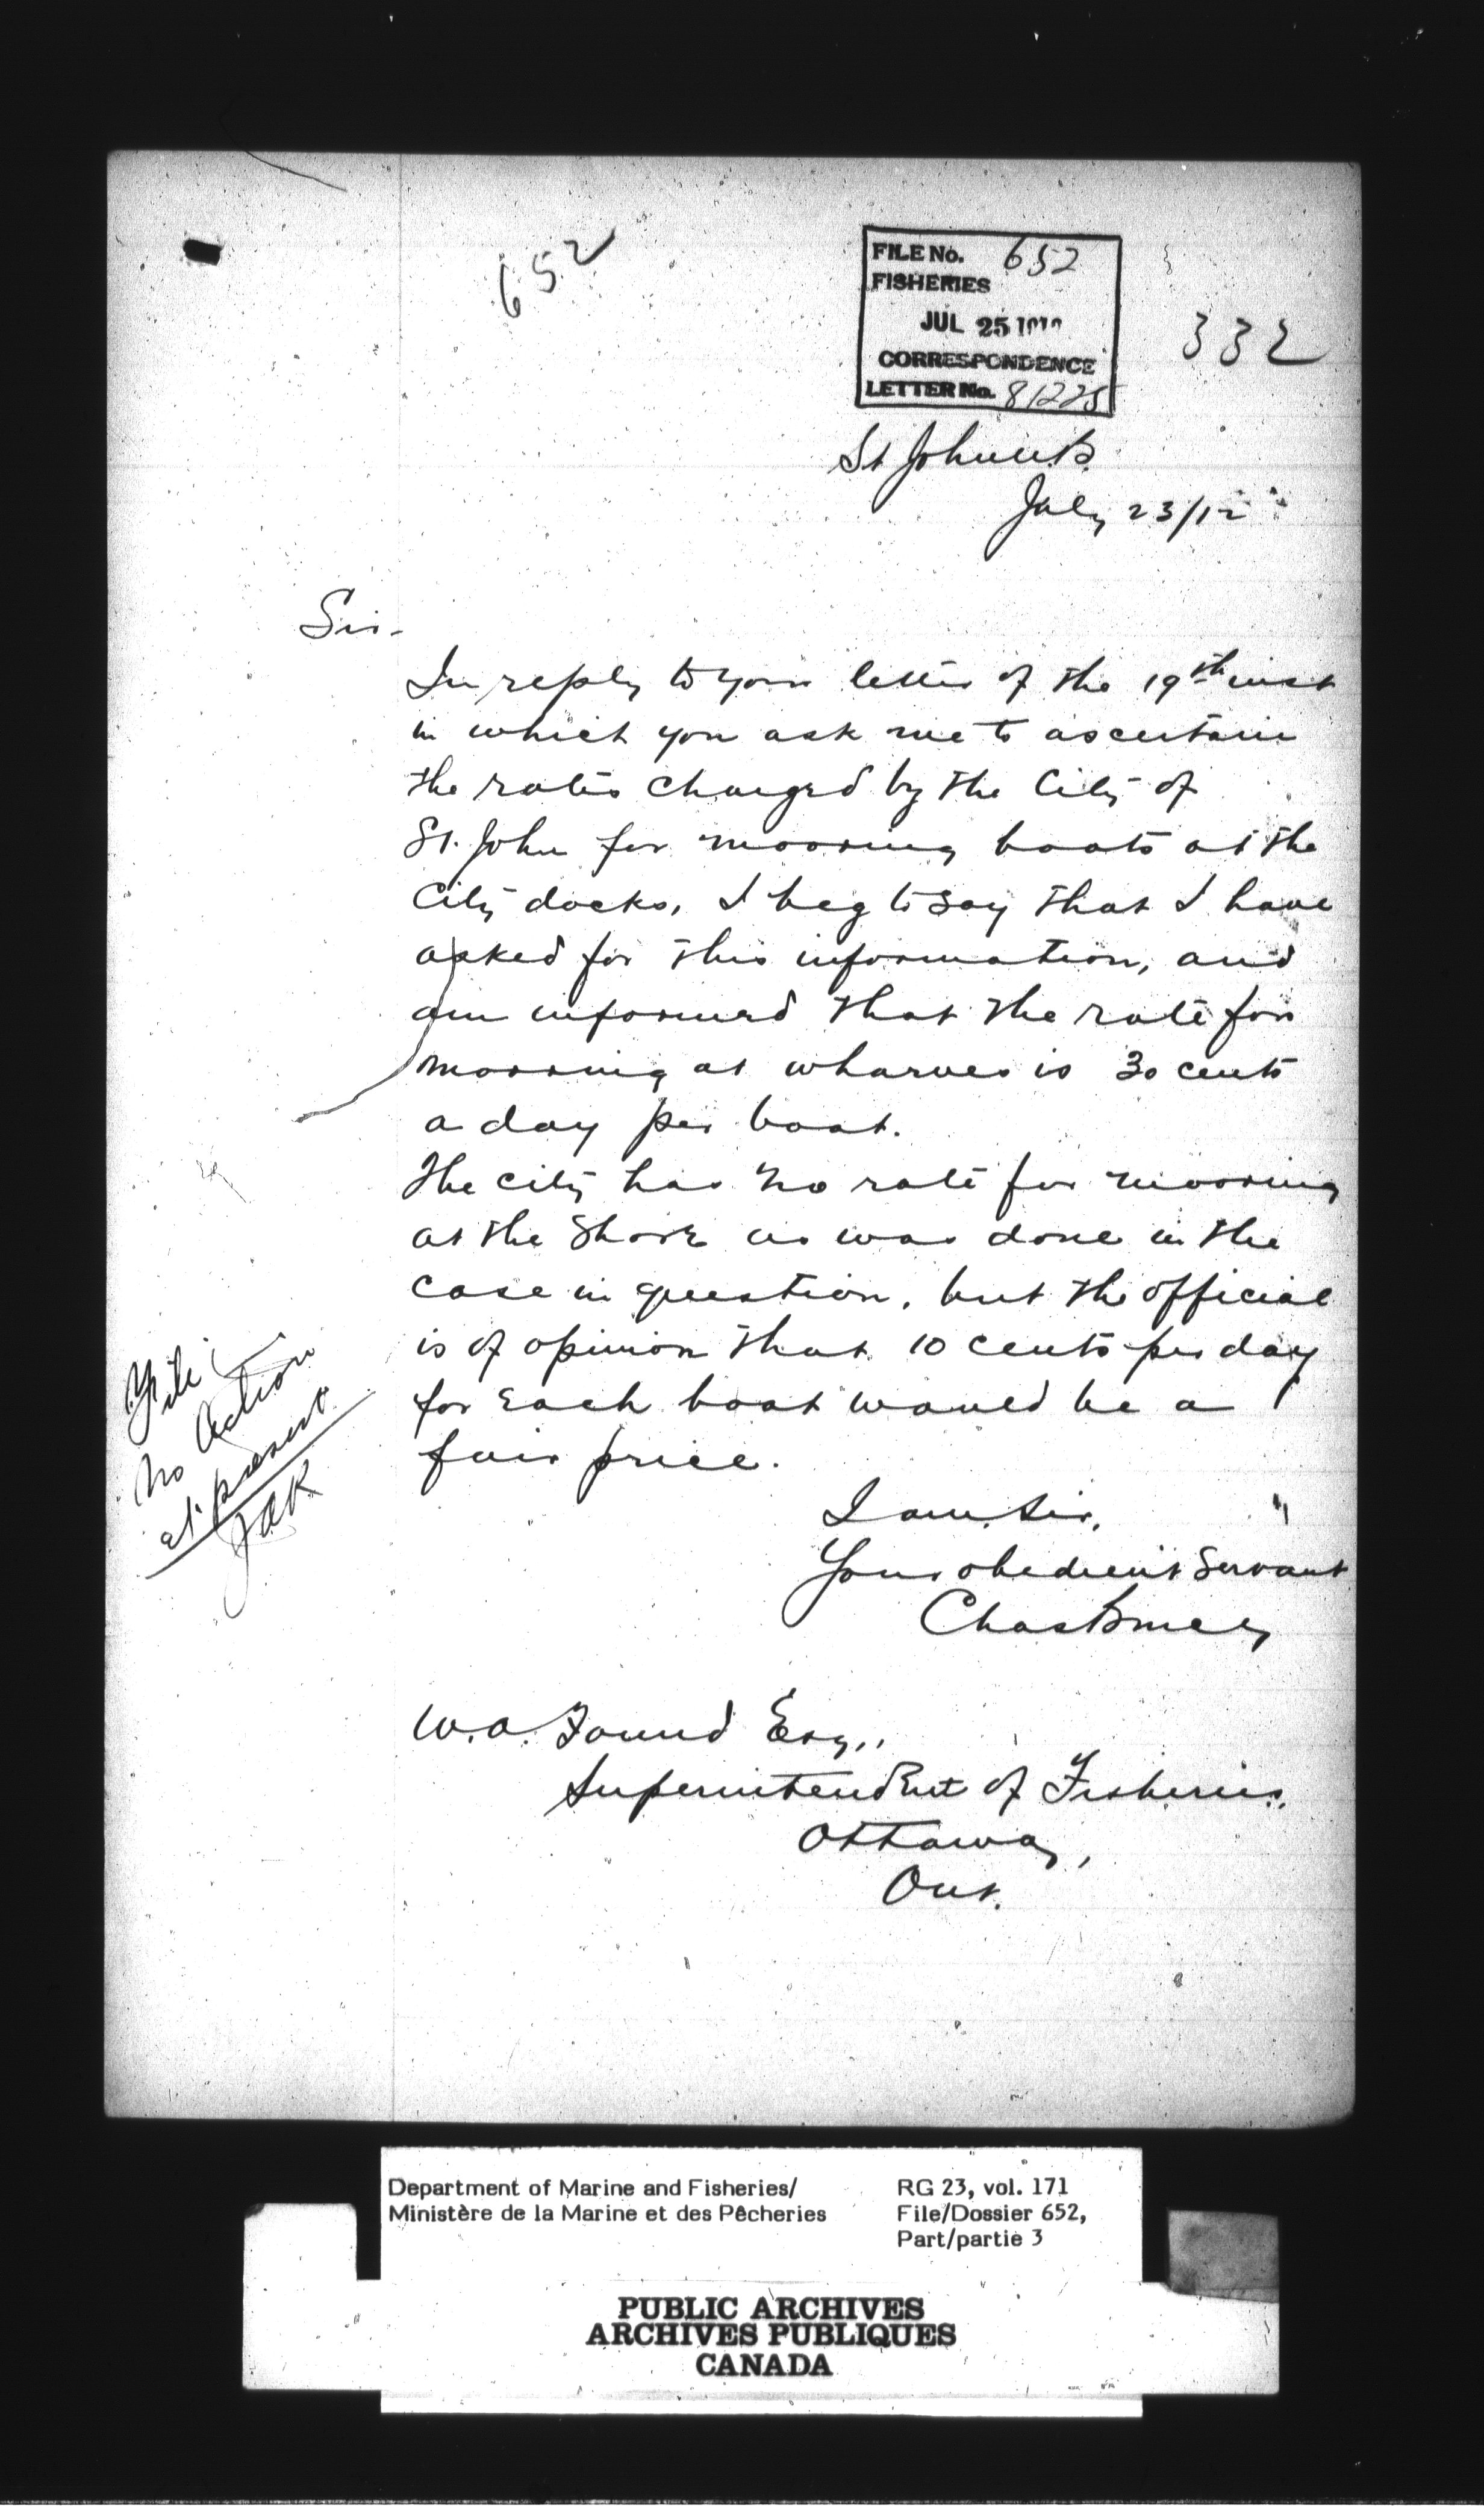 652
FILE No. 652
FISHERIES
JUL 25 1912
CORRESPONDENCE
LETTER No. 81225
332
St John N.B.
July 23/12
Sir.
In reply to your letter of the 19th inst
in which you ask me to ascertain
the rates charged by the City of
St. John for mooring boats at the
City docks, I beg to say that I have
asked for this information, and
am informed that the rate for
mooring at wharves is 30 cents
a day per boat.
The city has no rate for mooring
at the shore as was done in the
case in question, but the official
is of opinion that 10 cents per day
for each boat would be a
fair price.
File
No Action
at present
JAR
I am, Sir,
Your obedient Servant
Chas
W.A. Found Esq.,
Superintendent of Fisheries,
Ottawa,
Ont.
Department of Marine and Fisheries/
Ministère de la Marine et des Pêcheries
RG 23, vol. 171
File/Dossier 652,
Part/partie 3
PUBLIC ARCHIVES
ARCHIVES PUBLIQUES
CANADA